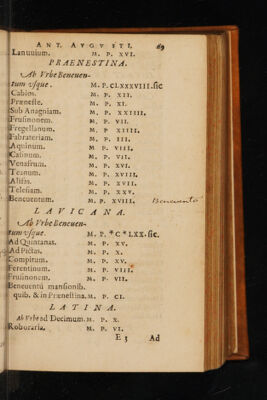 ANT. AVGVSTI. 69
Lanuuium. M. P. XVI.
PRAENESTINA.
Ab Vrbe Beneuen-
tum vsque. M. P. CLXXXVIII. sic
Gabios. M. P. XII.
Præneste. M. P. XI.
Sub Anagniam. M. P. XXIIII.
Frusinonem. M. P. VII.
Fregellanum. M. P. XIIII.
Fabrateriam. M. P. III.
Aquinum. M. P. VIII.
Casinum. M. P. VII.
Venafrum. M. P. XVI.
Teanum. M. P. XVIII.
Alifas. M. P. XVII.
Telesiam. M. P. XXV.
Beneuentum. M. P. XVIII. Beneuento
LAVICANA.
Ab Vrbe Beneuen-
tum vsque. M. P. *C* LXX. sic.
Ad Quintanas. M. P. XV.
Ad Pictas. M. P. X.
Compitum. M. P. XV.
Ferentinum. M. P. VIII.
Frusinonem. M. P. VII.
Beneuentū mansionib.
quib. & in Prænestina. M. P. CI.
LATINA.
Ab Vrbe ad Decimum. M. P. X.
Roboraria. M. P. VI.
E 3 Ad